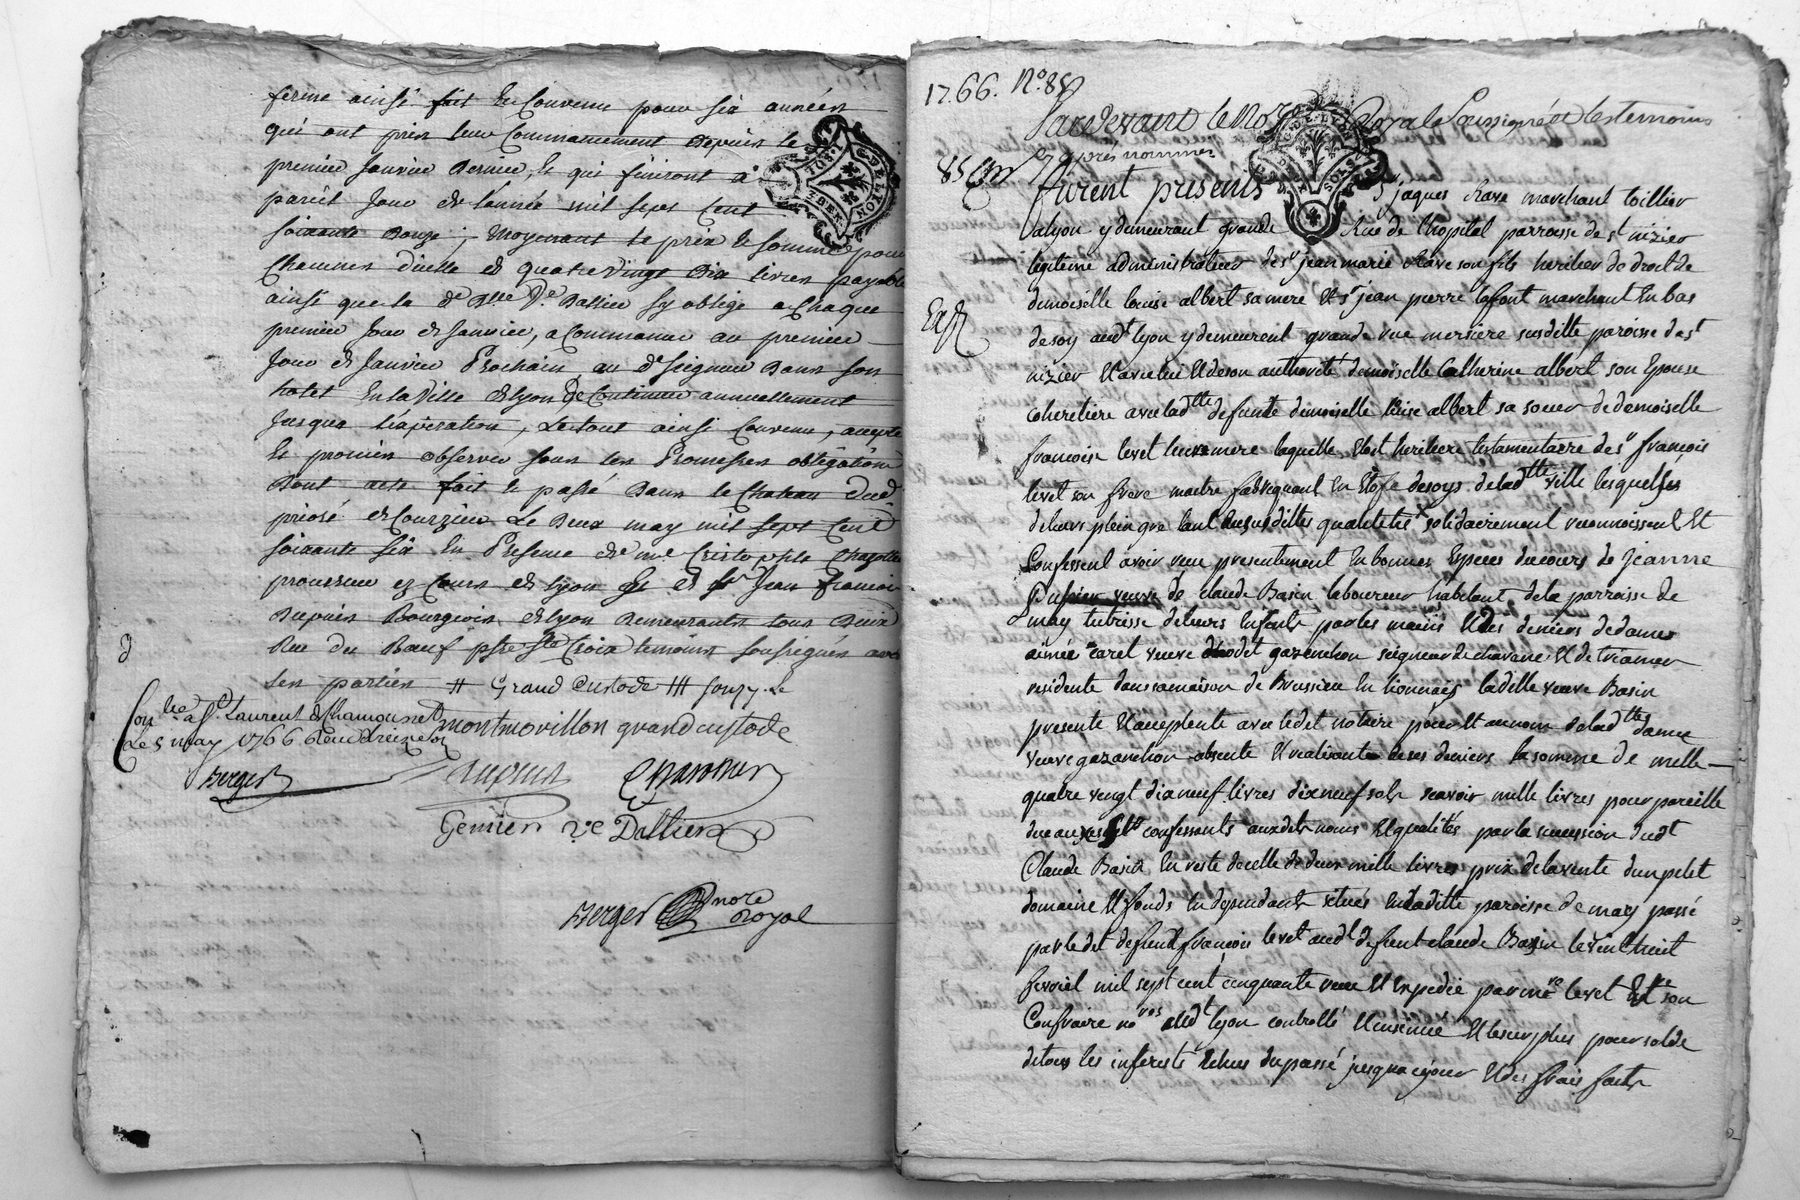 ferme ainsi fait et Convenu pour six années
qui ont pris leur Commancement Depuis le
premier Janvier Dernier, et qui finiront a
pareil Jour de l'année mil sept Cent
soixante Douze ; moyenant le prix et somme pour
Chacunes d'icelle de quatre vingt Dix livres payable
ainsi que la de Dlle Ve Dallier s'y oblige a Chaque
premier Jour de Janvier, a Commancer au premier
Jour de Janvier Prochain, au d. Seigneur Dans son
hotel En la Ville de Lyon, de Continuer annuellement
Jusqua l'expiration, Le tout ainsi Convenu, accepté
et promis observer sous les Promesses obligations
Dont acte fait et passé Dans le Chateau Dud
prioré de Courzieu Le Deux may mil sept Cent
soixante six En Presence de me
procureur ez Cours de Lyon et de sr Jean François
Dupuis Bourgeois de Lyon Demeurants tous Deux
Rue du Bœuf psse Ste Croix temoins soussignés avec
les parties # Grand Custode ##
Conlé a St Laurent de Chamousset montmorillon grand custode
Le 5 may 1766
Berger Dupuis
Gemier Ve Dallier
Berger nore
royal
1766. No. 85
Pardevant le Nore Royal Soussigné et les temoins
85 apres nommes
furent presents Sr jaques Rave marchant toillier
a lyon y demeurant grande Rue de l'hopital parroisse de st nizier
legitime administrateur de sr jean marie Rave son fils heritier de droit de
demoiselle louise albert sa mere et sr jean pierre lafont marchant en bas
de soy aud lyon y demeurent grande rue mersiere susditte paroisse de st
nizier et avec lui et de son authorité demoiselle Catherine albert son Epouse
coheretiere avec lad tte defunte demoiselle louise albert sa soeur de demoiselle
francoise levet leur mere laquelle etoit heritiere testamentaire de sr francois
levet son frere maitre fabriquant en Etofe de soys de lad tte ville lesquelles
de leurs plein gre tant susdittes qualités x solidairement reconnoissent et
Confessent avoir reçu presentement en bonnes Especes du cours de jeanne
veuve de claude Basin laboureur habitant de la parroisse de
may tutrisse de leurs enfants par les mains et des deniers de dame
aimée carel veuve gazanchon seigneur de chavane et de
residente dans sa maison de Brussieu en lionnais laditte veuve Basin
presente et acceptente avec led et notaire pour et au nom de lad tte dame
veuve gazanchon absente de ses deniers la somme de mille
quatre vengt dix neuf livres dix neuf sols scavoir mille livres pour pareille
due auxdits confessants auxdits noms et qualités par la sucession dudt
Claude Basin en reste de celle de deux mille livres prix de la vente dun petit
domaine et fonds en dependants situés en laditte paroisse de may passé
par le dit defunt francois levet audt defunt claude Basin le vint huit
fevriel mil sept cent cinquante et expediè par me levet et son
Confraire no res audt lyon controllé et insinué et le surplus pour solde
de tous les interests echus du passé jusqua ce jour et des frais faits